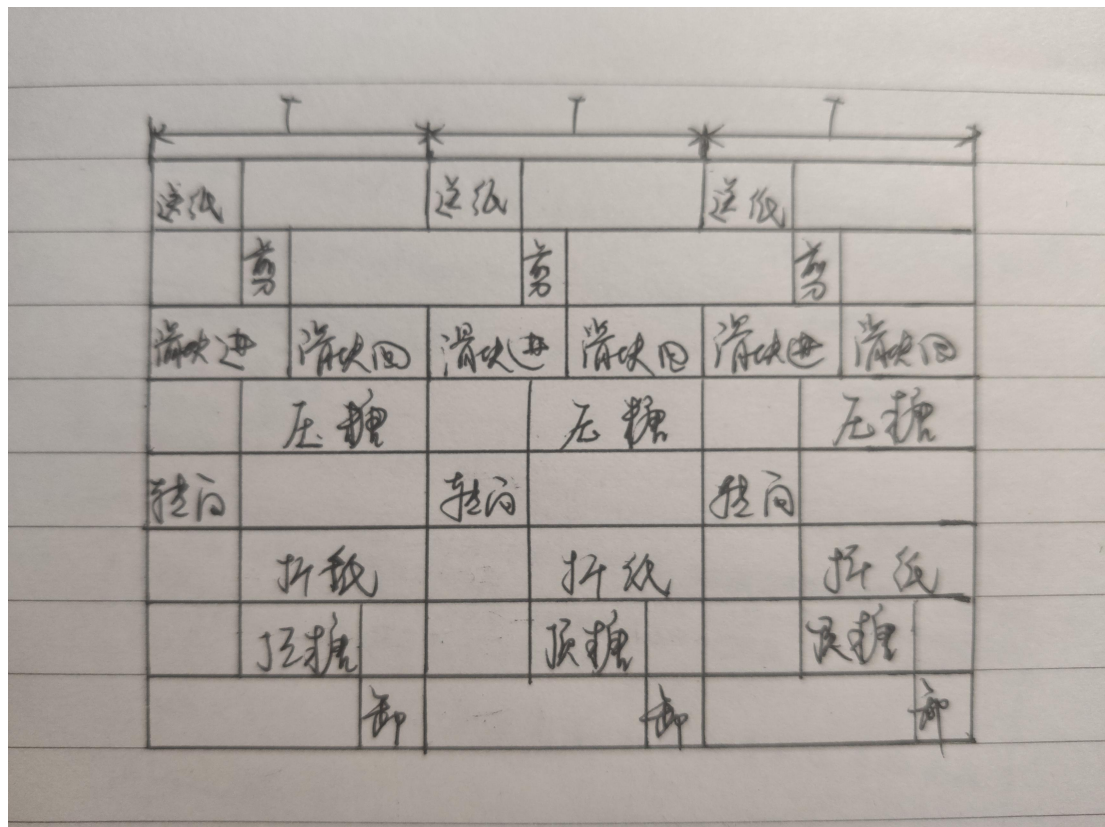 T T T
送纸 送纸 送纸
剪 剪 剪
滑块进 滑块回 滑块进 滑块回 滑块进 滑块回
压糖 压糖 压糖
转向 转向 转向
折纸 折纸 折纸
顶糖 顶糖 顶糖
卸 卸 卸